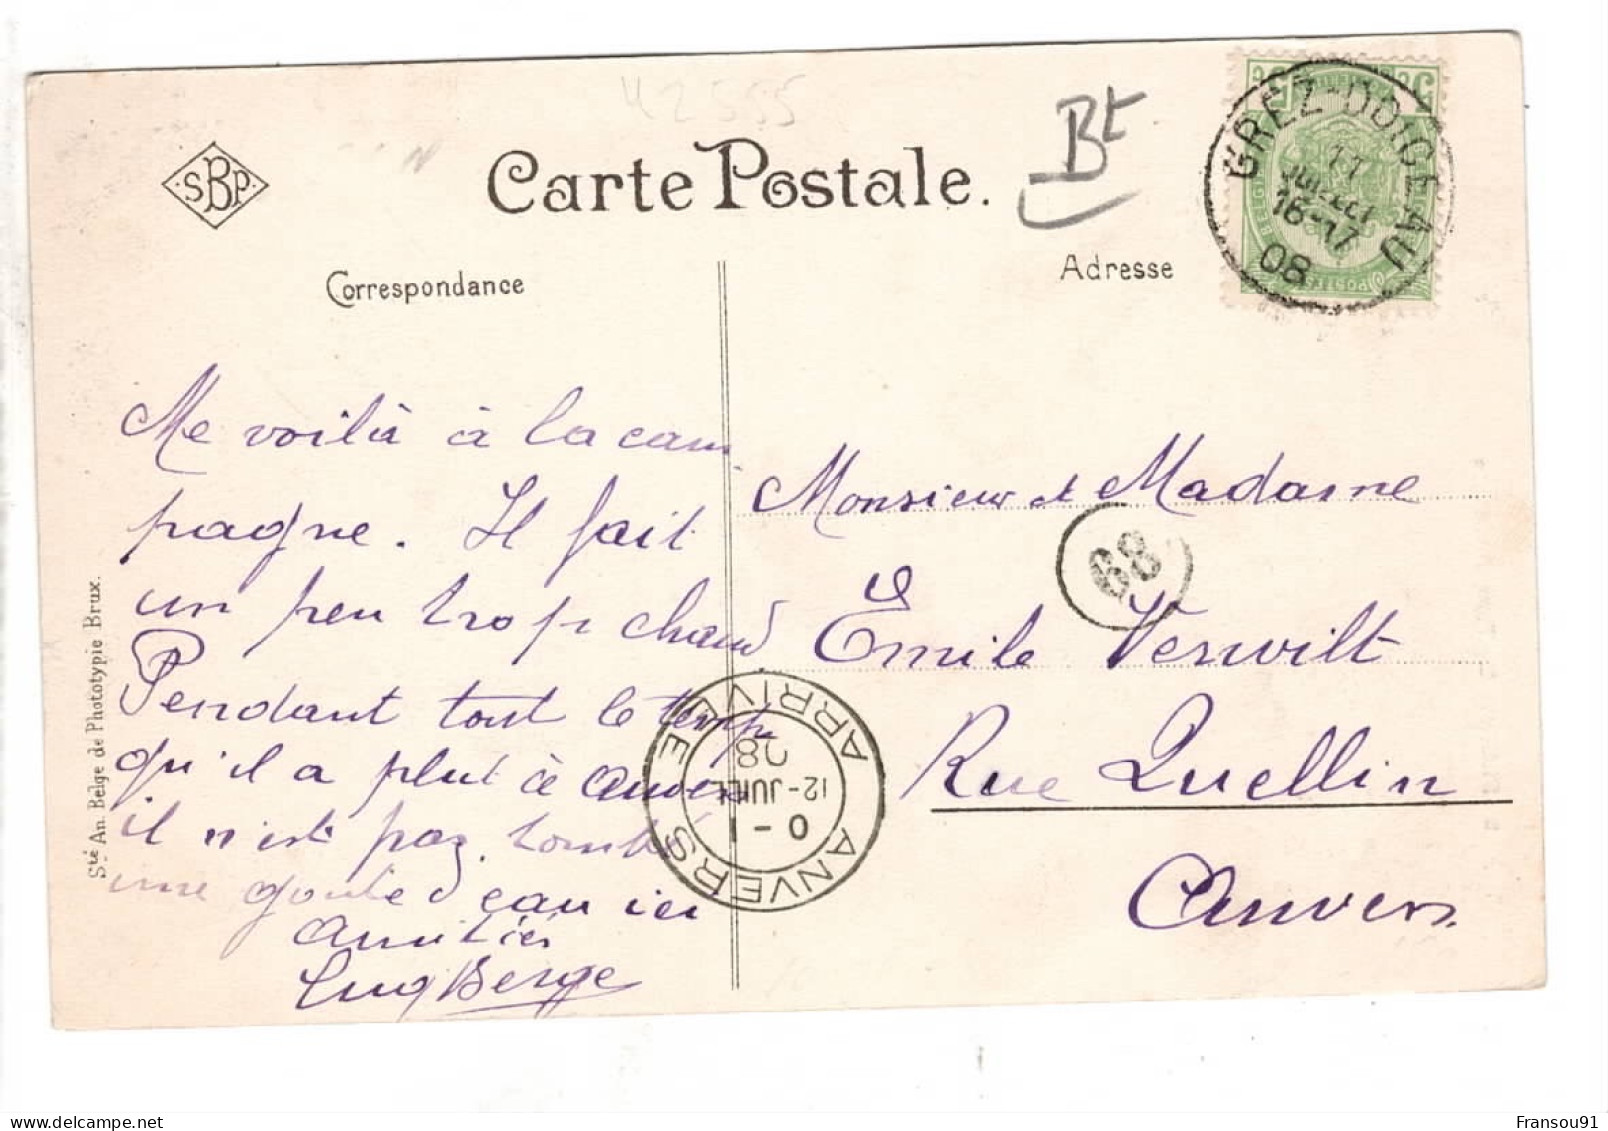 42555
SBP
Carte Postale.
Bt
GREZ-DOICEAU
11
JUILLET
16-17
08
Correspondance
Adresse
Me voilà à la cam
pagne. Il fait
un peu trop chaud
Pendant tout le temps
qu'il a plut à Anvers
il n'est pas tombé
une goute d'eau ici
Amitiés
Berge
Monsieur et Madame
68
Emile Verwilt
Rue Quellin
Anvers
ANVERS ARRIVÉE
0-1
12-JUIL
08
Sté An. Belge de Phototypie Brux.
www.delcampe.net
Fransou91